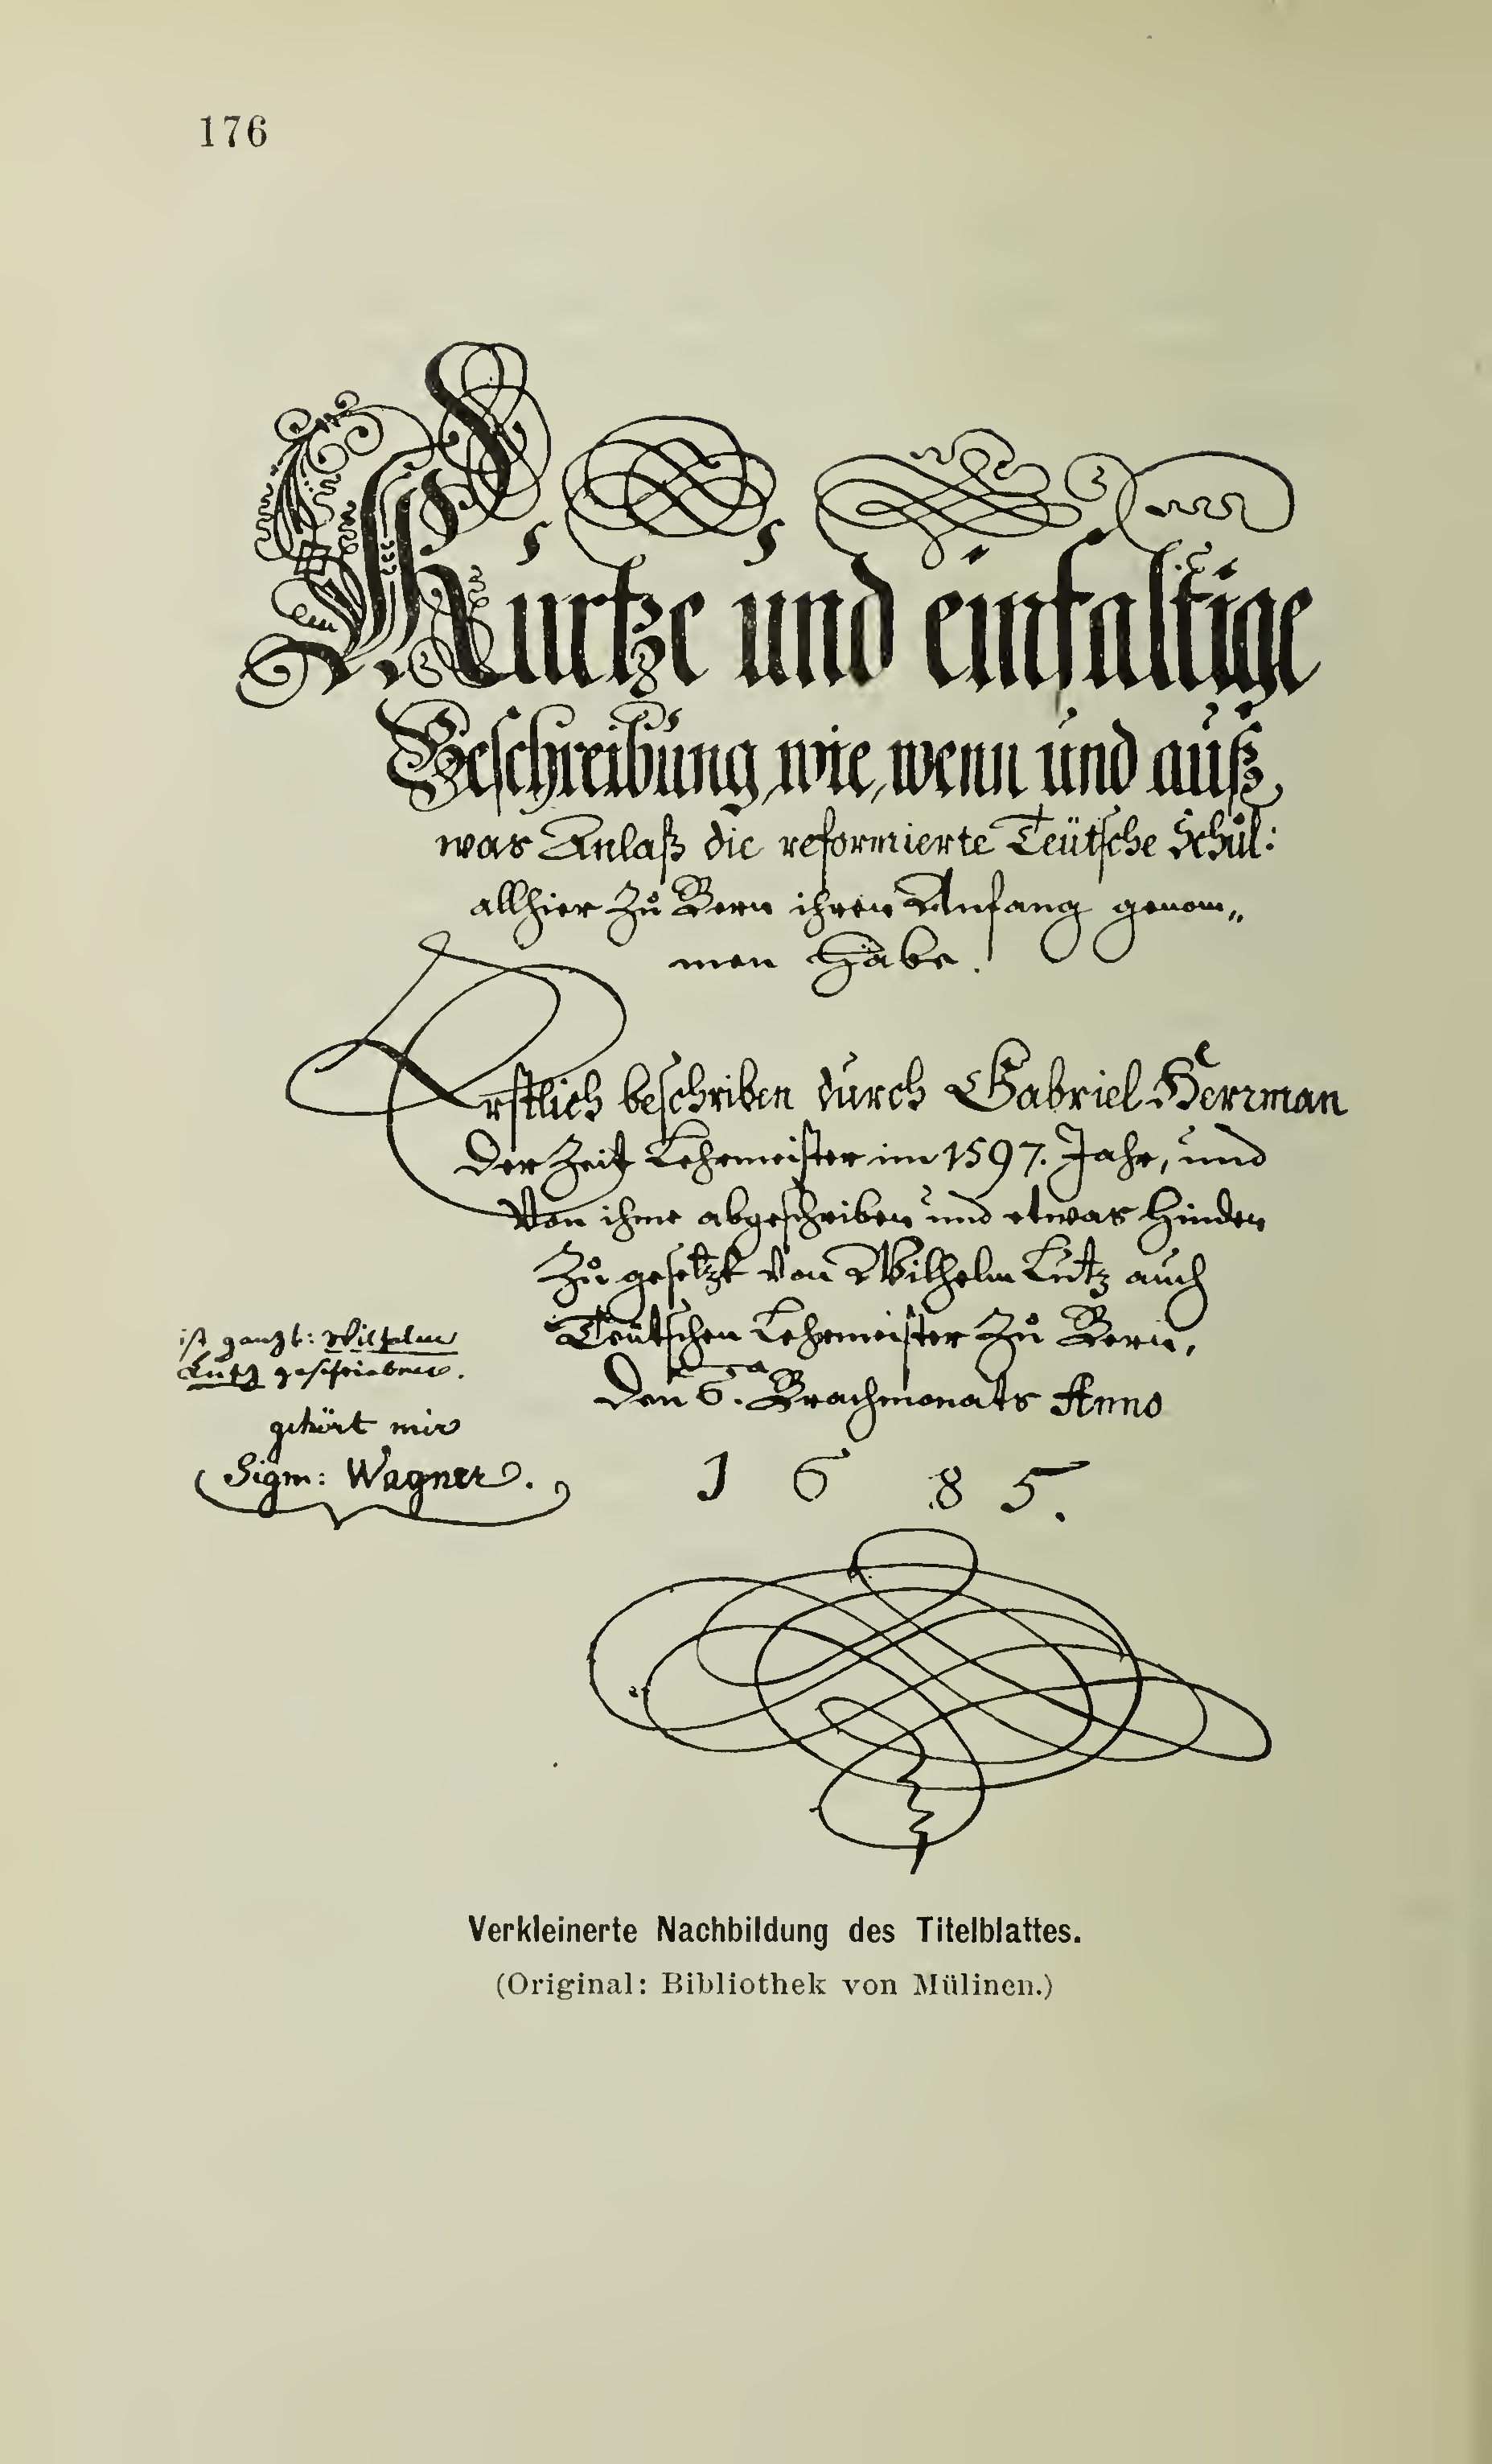 176
Kurtze und einfaltige
Beschreibung, wie, wenn und auß
was Anlaß die reformierte Teütsche Schůl:
allhier Zů Bern ihren Anfang genom„
men Habe.
Erstlich beschriben durch Gabriel Herrman
Der Zeit Lehrmeister im 1597. Jahr, und
Von ihme abgeschriben und etwas hinden
Zů gesetzt von Wilhelm Lutz auch
Teütschen Lehrmeister Zů Bern,
Den 6. Brachmonats Anno
1685.
ist von: Wilhelm
Lutz geschrieben.
gehört mir
Sigm: Wagner.
Verkleinerte Nachbildung des Titelblattes.
(Original: Bibliothek von Mülinen.)